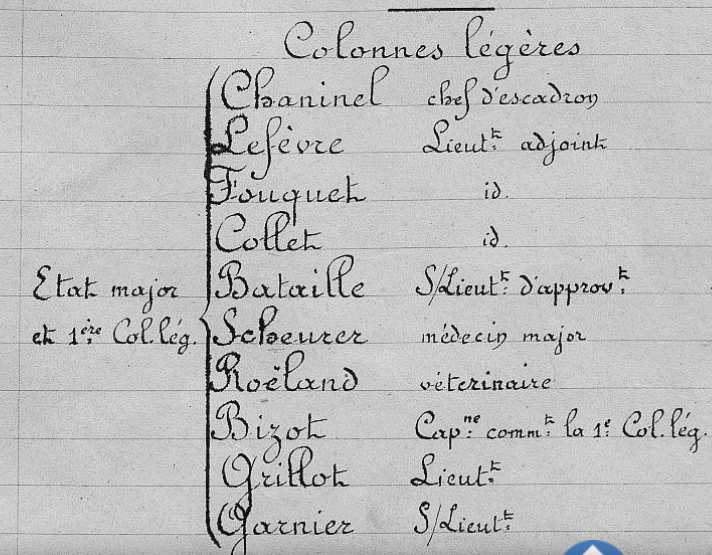 Colonnes légères
Chaninel chef d'escadron
Lefèvre Lieut.t adjoint
Fouquet id.
Collet id.
Etat major Bataille S/Lieut.t d'approv.t
et 1.ère Col. lég. Scheurer médecin major
Roëland véterinaire
Bizot Cap.ne comm.t la 1.e Col. lég.
Grillot Lieut.t
Garnier S/Lieut.t